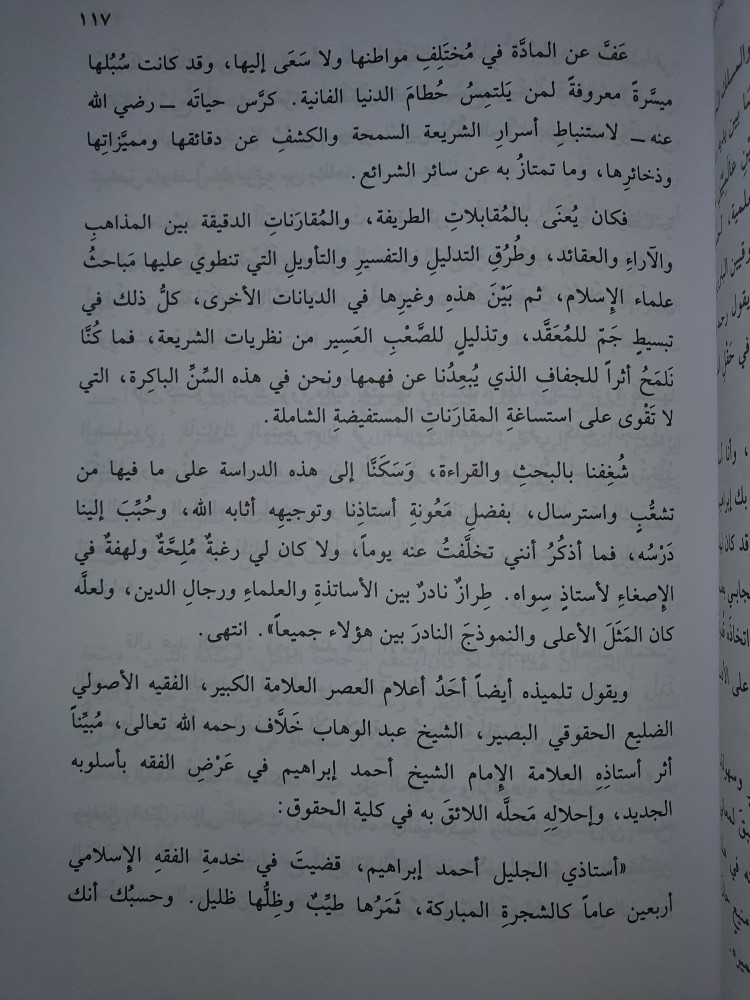 ١١٧
عَفَّ عن المادَّة في مُختَلِفِ مواطنها ولا سَعَى إليها، وقد كانت سُبُلها
ميسَّرةً معروفةً لمن يَلتمِسُ حُطامَ الدنيا الفانية. كرَّس حياتَه ــ رضي الله
عنه ــ لاستنباطِ أسرارِ الشريعة السمحة والكشفِ عن دقائقها ومميَّزاتِها
وذخائرِها، وما تمتازُ به عن سائر الشرائع.
فكان يُعنَى بالمُقابلاتِ الطريفة، والمُقارَناتِ الدقيقة بين المذاهبِ
والآراءِ والعقائد، وطُرُقِ التدليلِ والتفسيرِ والتأويلِ التي تنطوي عليها مَباحثُ
علماء الإِسلام، ثم بَيْنَ هذهِ وغيرِها في الديانات الأخرى، كلُّ ذلك في
تبسيطٍ جَمّ للمُعَقَّد، وتذليلٍ للصَّعْبِ العَسِير من نظريات الشريعة، فما كُنَّا
نَلمَحُ أثراً للجفافِ الذي يُبعِدُنا عن فهمها ونحن في هذه السِّنِّ الباكِرة، التي
لا تَقْوى على استساغةِ المقارَناتِ المستفيضةِ الشاملة.
شُغِفنا بالبحثِ والقراءة، وَسَكَنَّا إلى هذه الدراسة على ما فيها من
تشعُّبٍ واسترسال، بفضلِ مَعُونةِ أستاذِنا وتوجيهِه أثابه الله، وحُبِّبَ إلينا
دَرْسُه، فما أذكُرُ أنني تخلَّفتُ عنه يوماً، ولا كان لي رغبةٌ مُلِحَّةٌ ولهفةٌ في
الإِصغاءِ لأستاذٍ سِواه. طِرازٌ نادرٌ بين الأساتذةِ والعلماءِ ورجالِ الدين، ولعلَّه
كان المَثَلَ الأعلى والنموذجَ النادرَ بين هؤلاء جميعاً». انتهى.
ويقول تلميذه أيضاً أحَدُ أعلام العصر العلامة الكبير، الفقيه الأصولي
الضليع الحقوقي البصير، الشيخ عبد الوهاب خَلَّاف رحمه الله تعالى، مُبيِّناً
أثر أستاذِهِ العلامة الإِمام الشيخ أحمد إبراهيم في عَرْضِ الفقه بأسلوبه
الجديد، وإحلالِهِ مَحلَّه اللائقَ به في كلية الحقوق:
«أستاذي الجليل أحمد إبراهيم، قضيتَ في خدمةِ الفقهِ الإِسلامي
أربعين عاماً كالشجرةِ المباركة، ثَمَرُها طيِّبٌ وظِلُّها ظليل. وحسبُك أنك